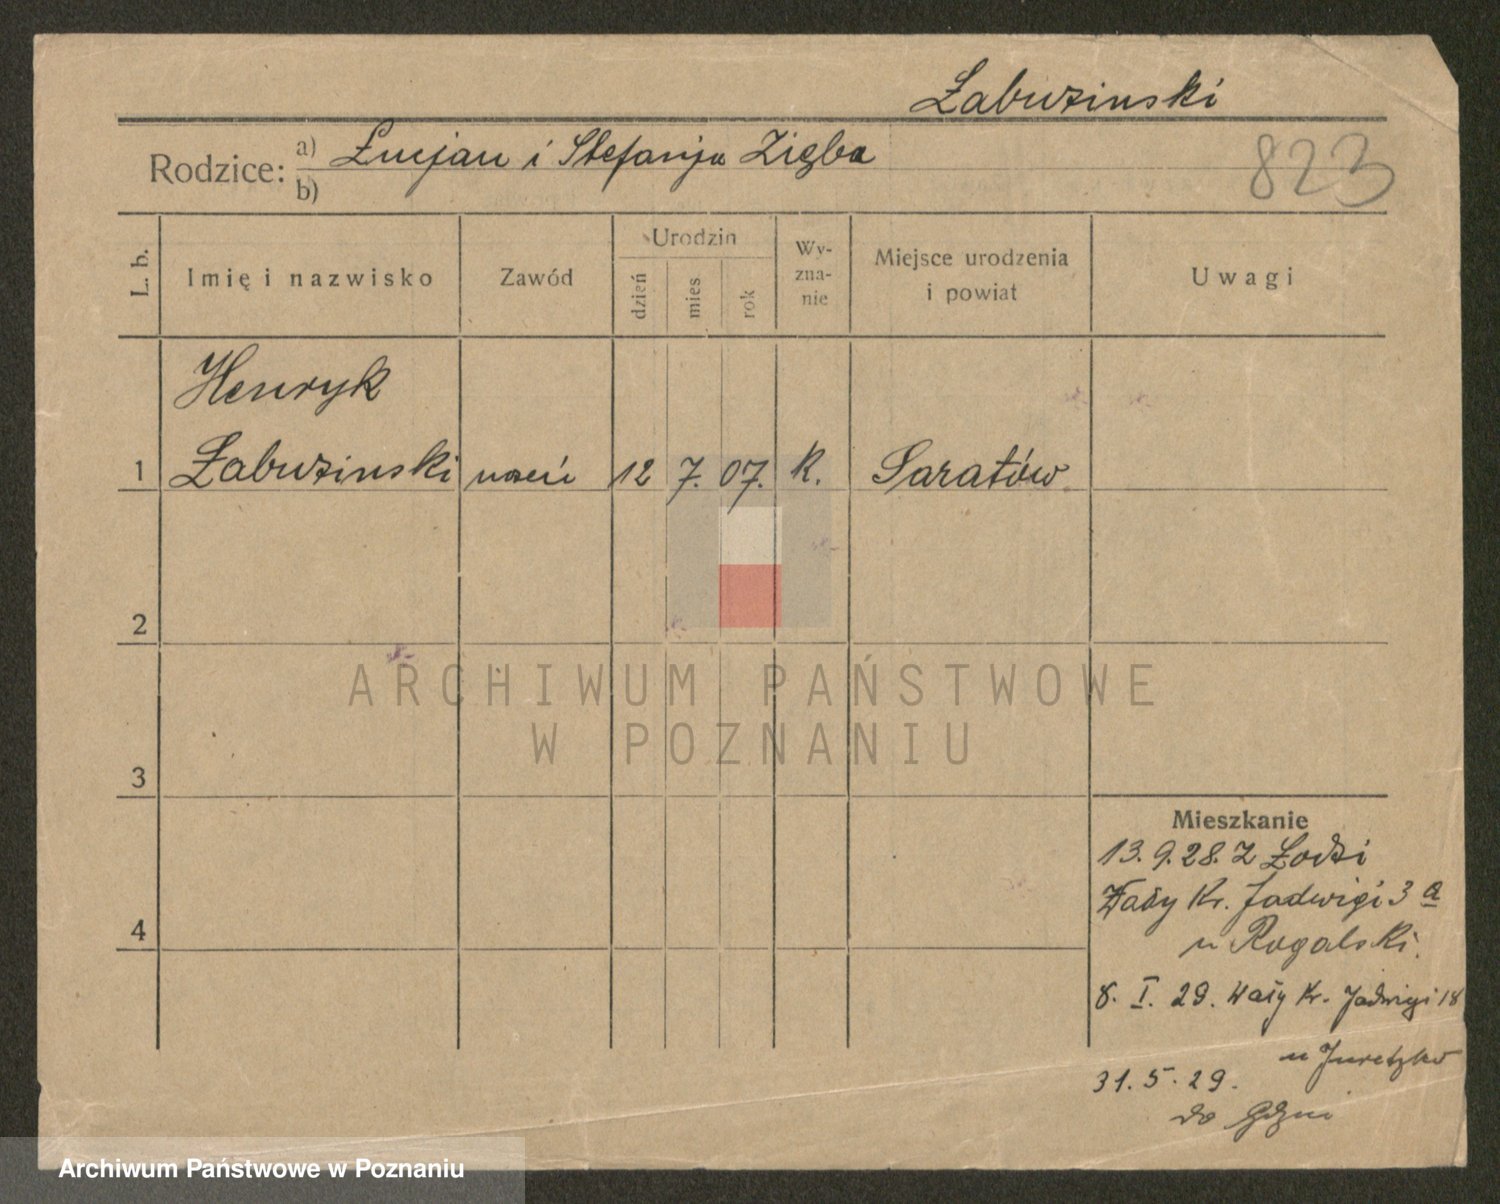 Łabuzinski
Rodzice: a) Łucjan i Stefanja Zięba
b)
823
L. b.
Imię i nazwisko
Zawód
Urodzin
dzień
mies
rok
Wy-
zna-
nie
Miejsce urodzenia
i powiat
Uwagi
Henryk
1 Łabuzinski uczeń 12 7. 07. k. Saratów
2
3
4
Mieszkanie
13.9.28. Z Łodzi
Wały Kr. Jadwigi 3 a
u Rogalski.
8. I. 29. Wały Kr. Jadwigi 18
u Juretzko
31. 5. 29.
do Gdyni
ARCHIWUM PAŃSTWOWE
W POZNANIU
Archiwum Państwowe w Poznaniu